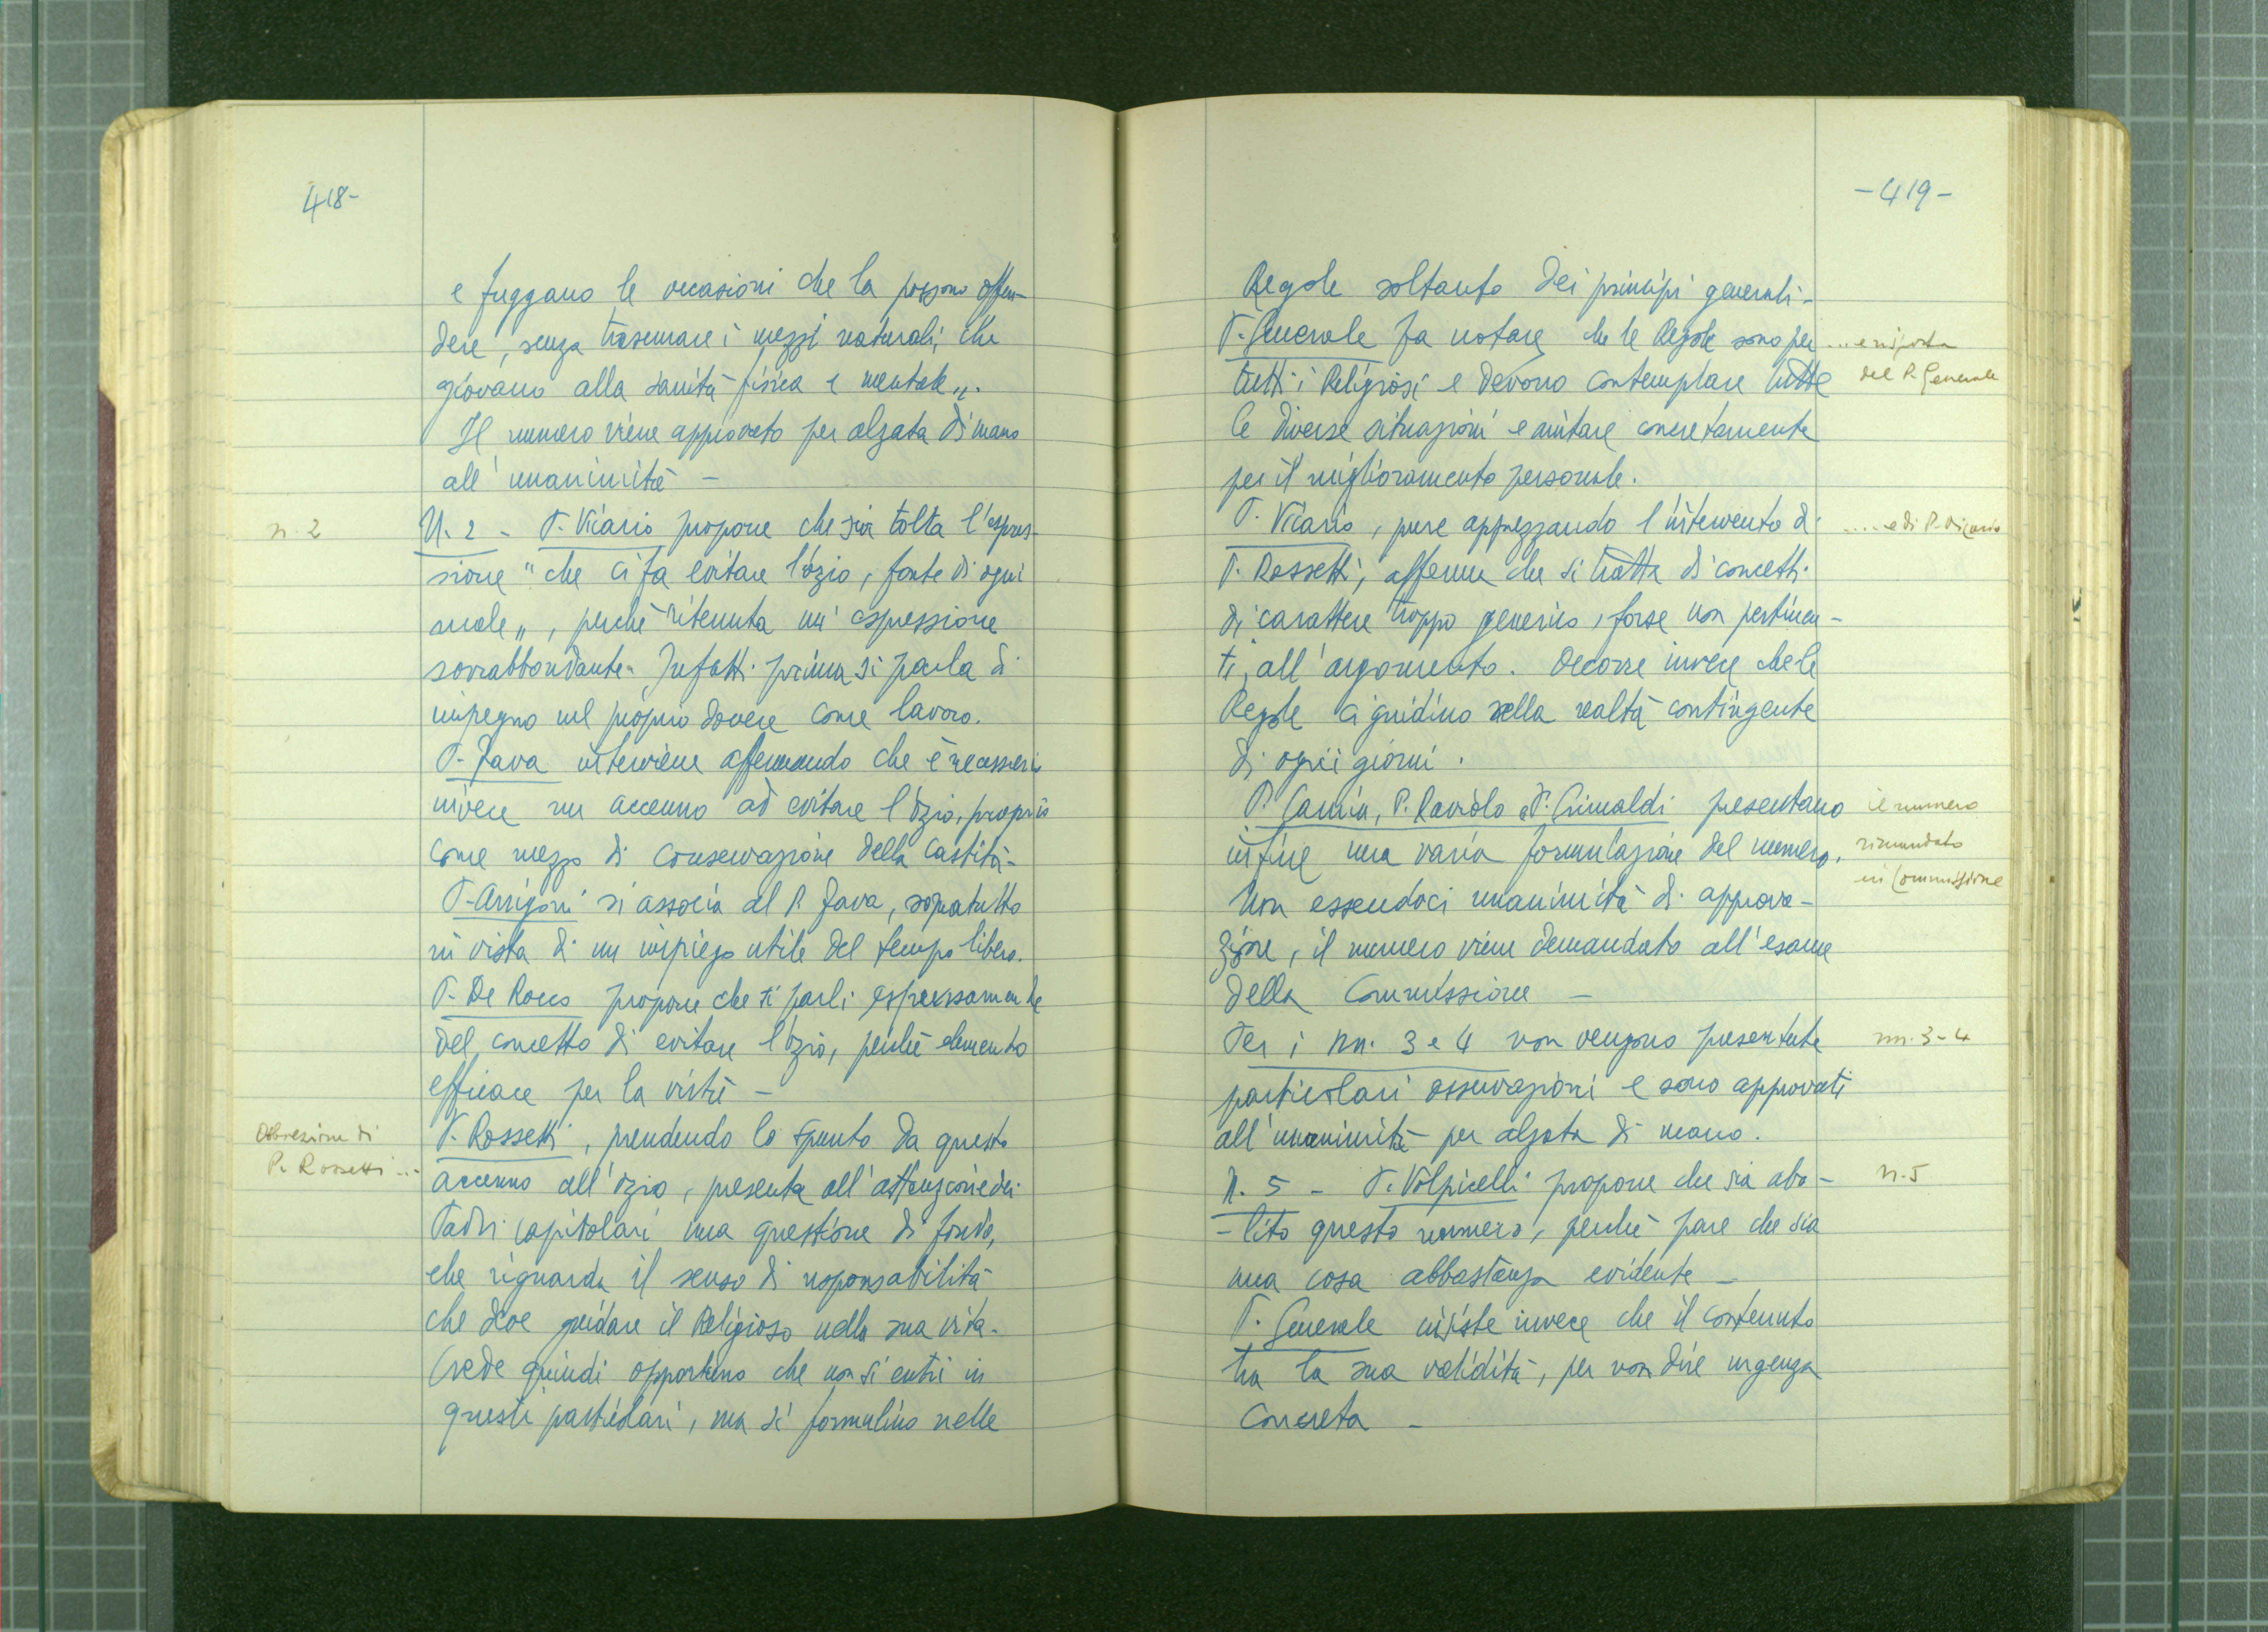 418-
e fuggano le occasioni che la possono offen-
dere, senza trascurare i mezzi naturali, che
giovano alla sanità fisica e mentale„.
Il numero viene approvato per alzata di mano
all'unanimità -
n. 2
N. 2 - P. Vicario propone che sia tolta l'espres-
sione "che ci fa evitare l'ozio, fonte di ogni
male„, perchè ritenuta un'espressione
sovrabbondante. Infatti prima si parla di
impegno nel proprio dovere come lavoro.
P. Fava interviene affermando che è necessario
invece un accenno ad evitare l'ozio, proprio
come mezzo di conservazione della castità-
P. Arrigoni si associa al P. Fava, sopratutto
in vista di un impiego utile del tempo libero.
P. De Rocco propone che si parli espressamente
del concetto di evitare l'ozio, perchè elemento
efficace per la virtù -
Obbiezione di
P. Rossetti ...
P. Rossetti, prendendo lo spunto da questo
accenno all'ozio, presenta all'attenzione dei
Padri capitolari una questione di fondo,
che riguarda il senso di responsabilità
che deve guidare il Religioso nella sua vita.
Crede quindi opportuno che non si entri in
questi particolari, ma si formulino nelle
-419-
Regole soltanto dei principi generali-
P. Generale fa notare che le Regole sono per
... e risposta
del P. Generale
tutti i Religiosi e devono contemplare tutte
le diverse situazioni e aiutare concretamente
per il miglioramento personale.
P. Vicario, pure apprezzando l'intervento di
.... e di P. Vicario
P. Rossetti, afferma che si tratta di concetti
di carattere troppo generico, forse non pertinen-
ti, all'argomento. Occorre invece che le
Regole ci guidino nella realtà contingente
di ogni giorni.
P. Camia, P. Raviolo e P. Grimaldi presentano
infine una varia formulazione del numero.
il numero
rimandato
in Commissione
Non essendoci unanimità di approva-
zione, il numero viene demandato all'esame
della Commissione -
Per i nn. 3 e 4 non vengono presentate
nn. 3-4
particolari osservazioni e sono approvati
all'unanimità per alzata di mano.
N. 5 - P. Volpicelli propone che sia abo-
n. 5
-lito questo numero, perchè pare che sia
una cosa abbastanza evidente -
P. Generale insiste invece che il contenuto
ha la sua validità, per non dire urgenza
concreta -